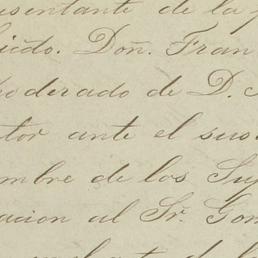 sentante de la
Don. Fran
oderado de D.
tor ante el sus
mbre de los Su
acion al Sr. Gon